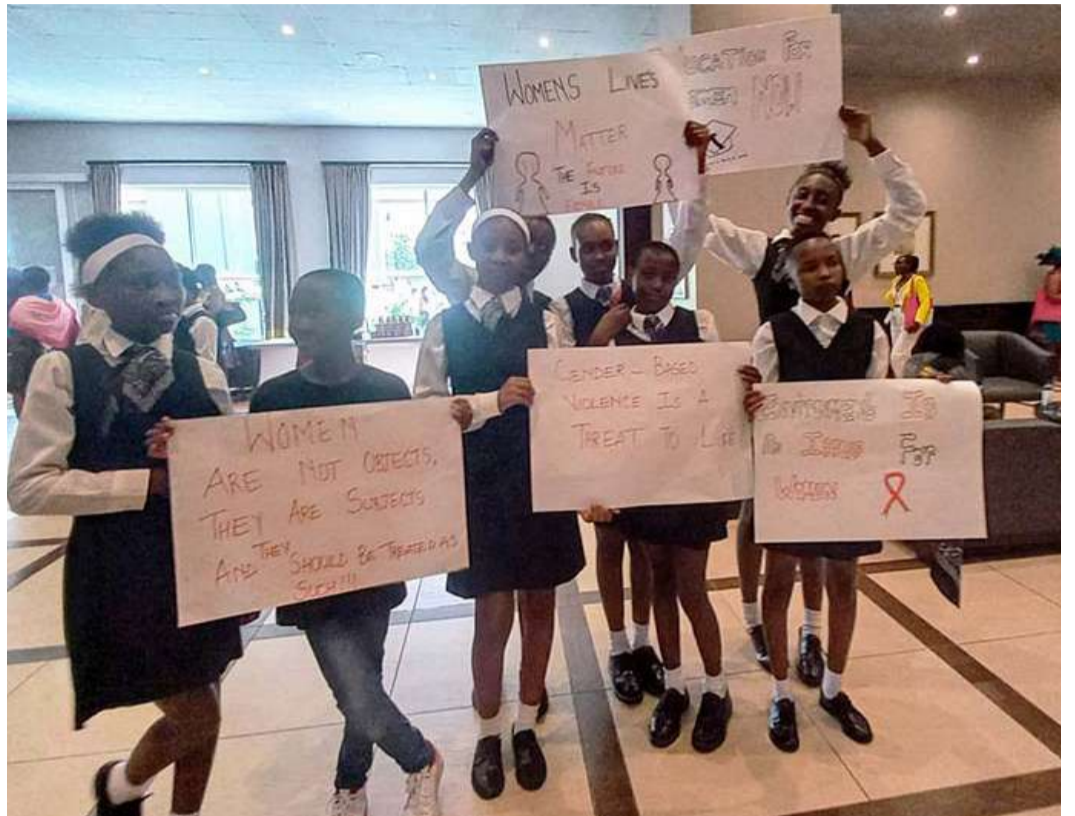 WOMENS LIVES
MATTER
THE FUTURE
IS
EQUAL
EDUCATION FOR
WOMEN NOW
WOMEN
ARE NOT OBJECTS,
THEY ARE SUBJECTS
AND THEY SHOULD BE TREATED AS
SUCH!!!
GENDER - BASED
VIOLENCE IS A
THREAT TO LIFE
IS
FOR
WOMEN